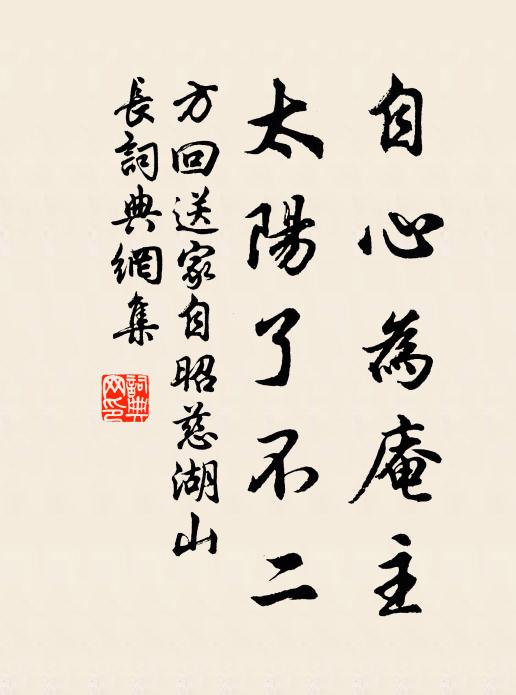 自心為庵主
太陽了不二
方回送家自昭慈湖山
長詞典網集
詞典
网印